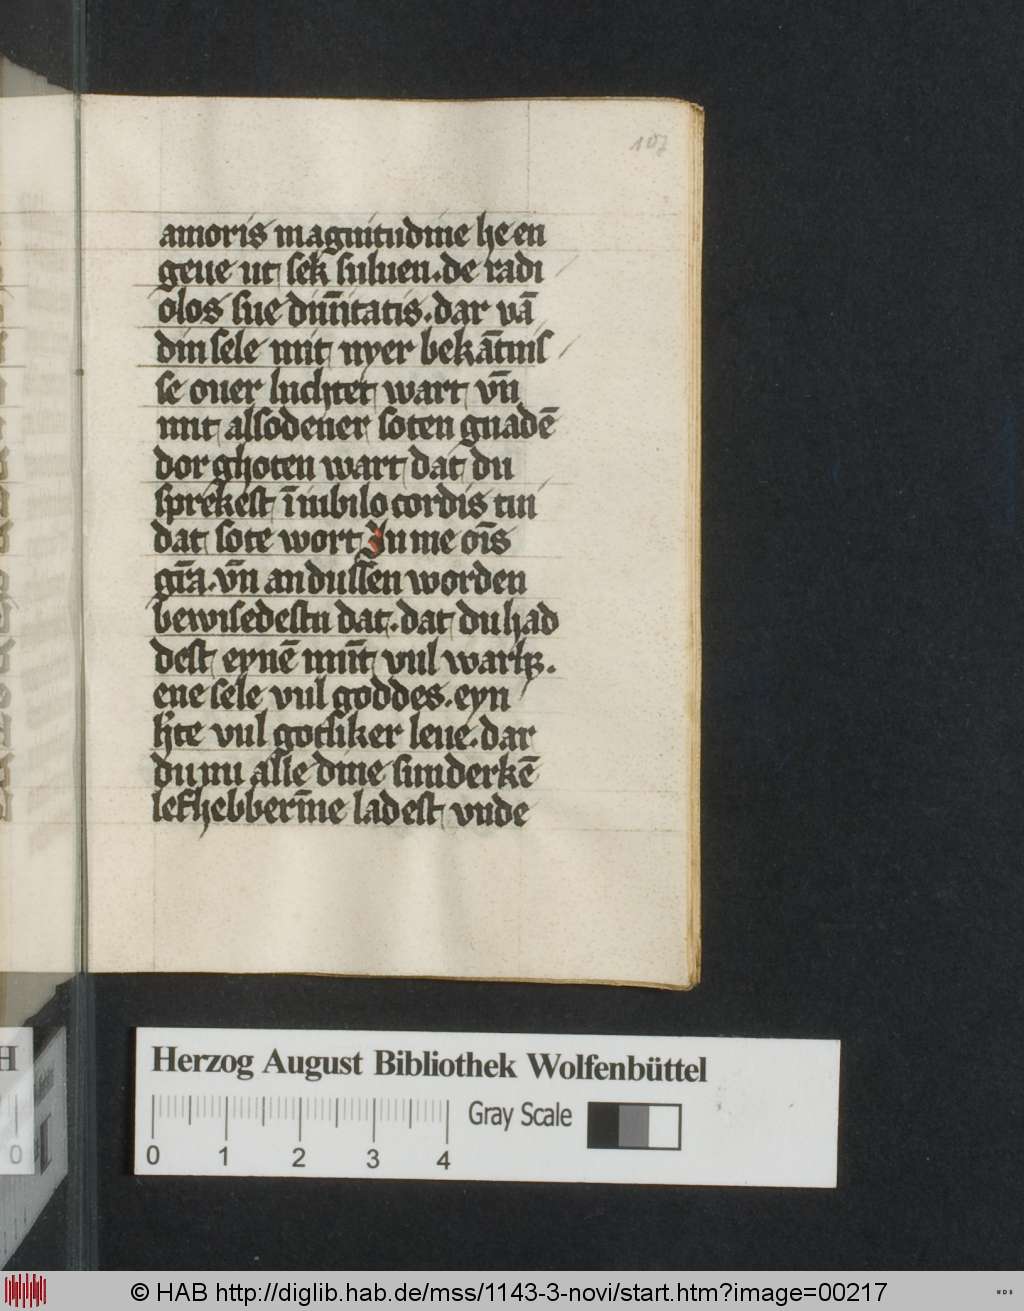 107
amoris magnitudine he en
geue ut sek suluen. de radi
olos sue diuinitatis. dar vā
din sele mit nyer bekātnis
se ouer luchtet wart vn̄
mit alsodener soten gnadē
dor ghoten wart dat du
sprekest ī iubilo cordis tui
dat sote wort In me oīs
gr̄a. vn̄ an dussen worden
bewisedestu dat. dat du had
dest eynē mūt vul
ene sele vul goddes. eyn
hte vul gotliker leue. dar
du nu alle dine sunderkē
lefhebberīne ladest vnde
Herzog August Bibliothek Wolfenbüttel
Gray Scale
0 1 2 3 4
H
0
© HAB http://diglib.hab.de/mss/1143-3-novi/start.htm?image=00217